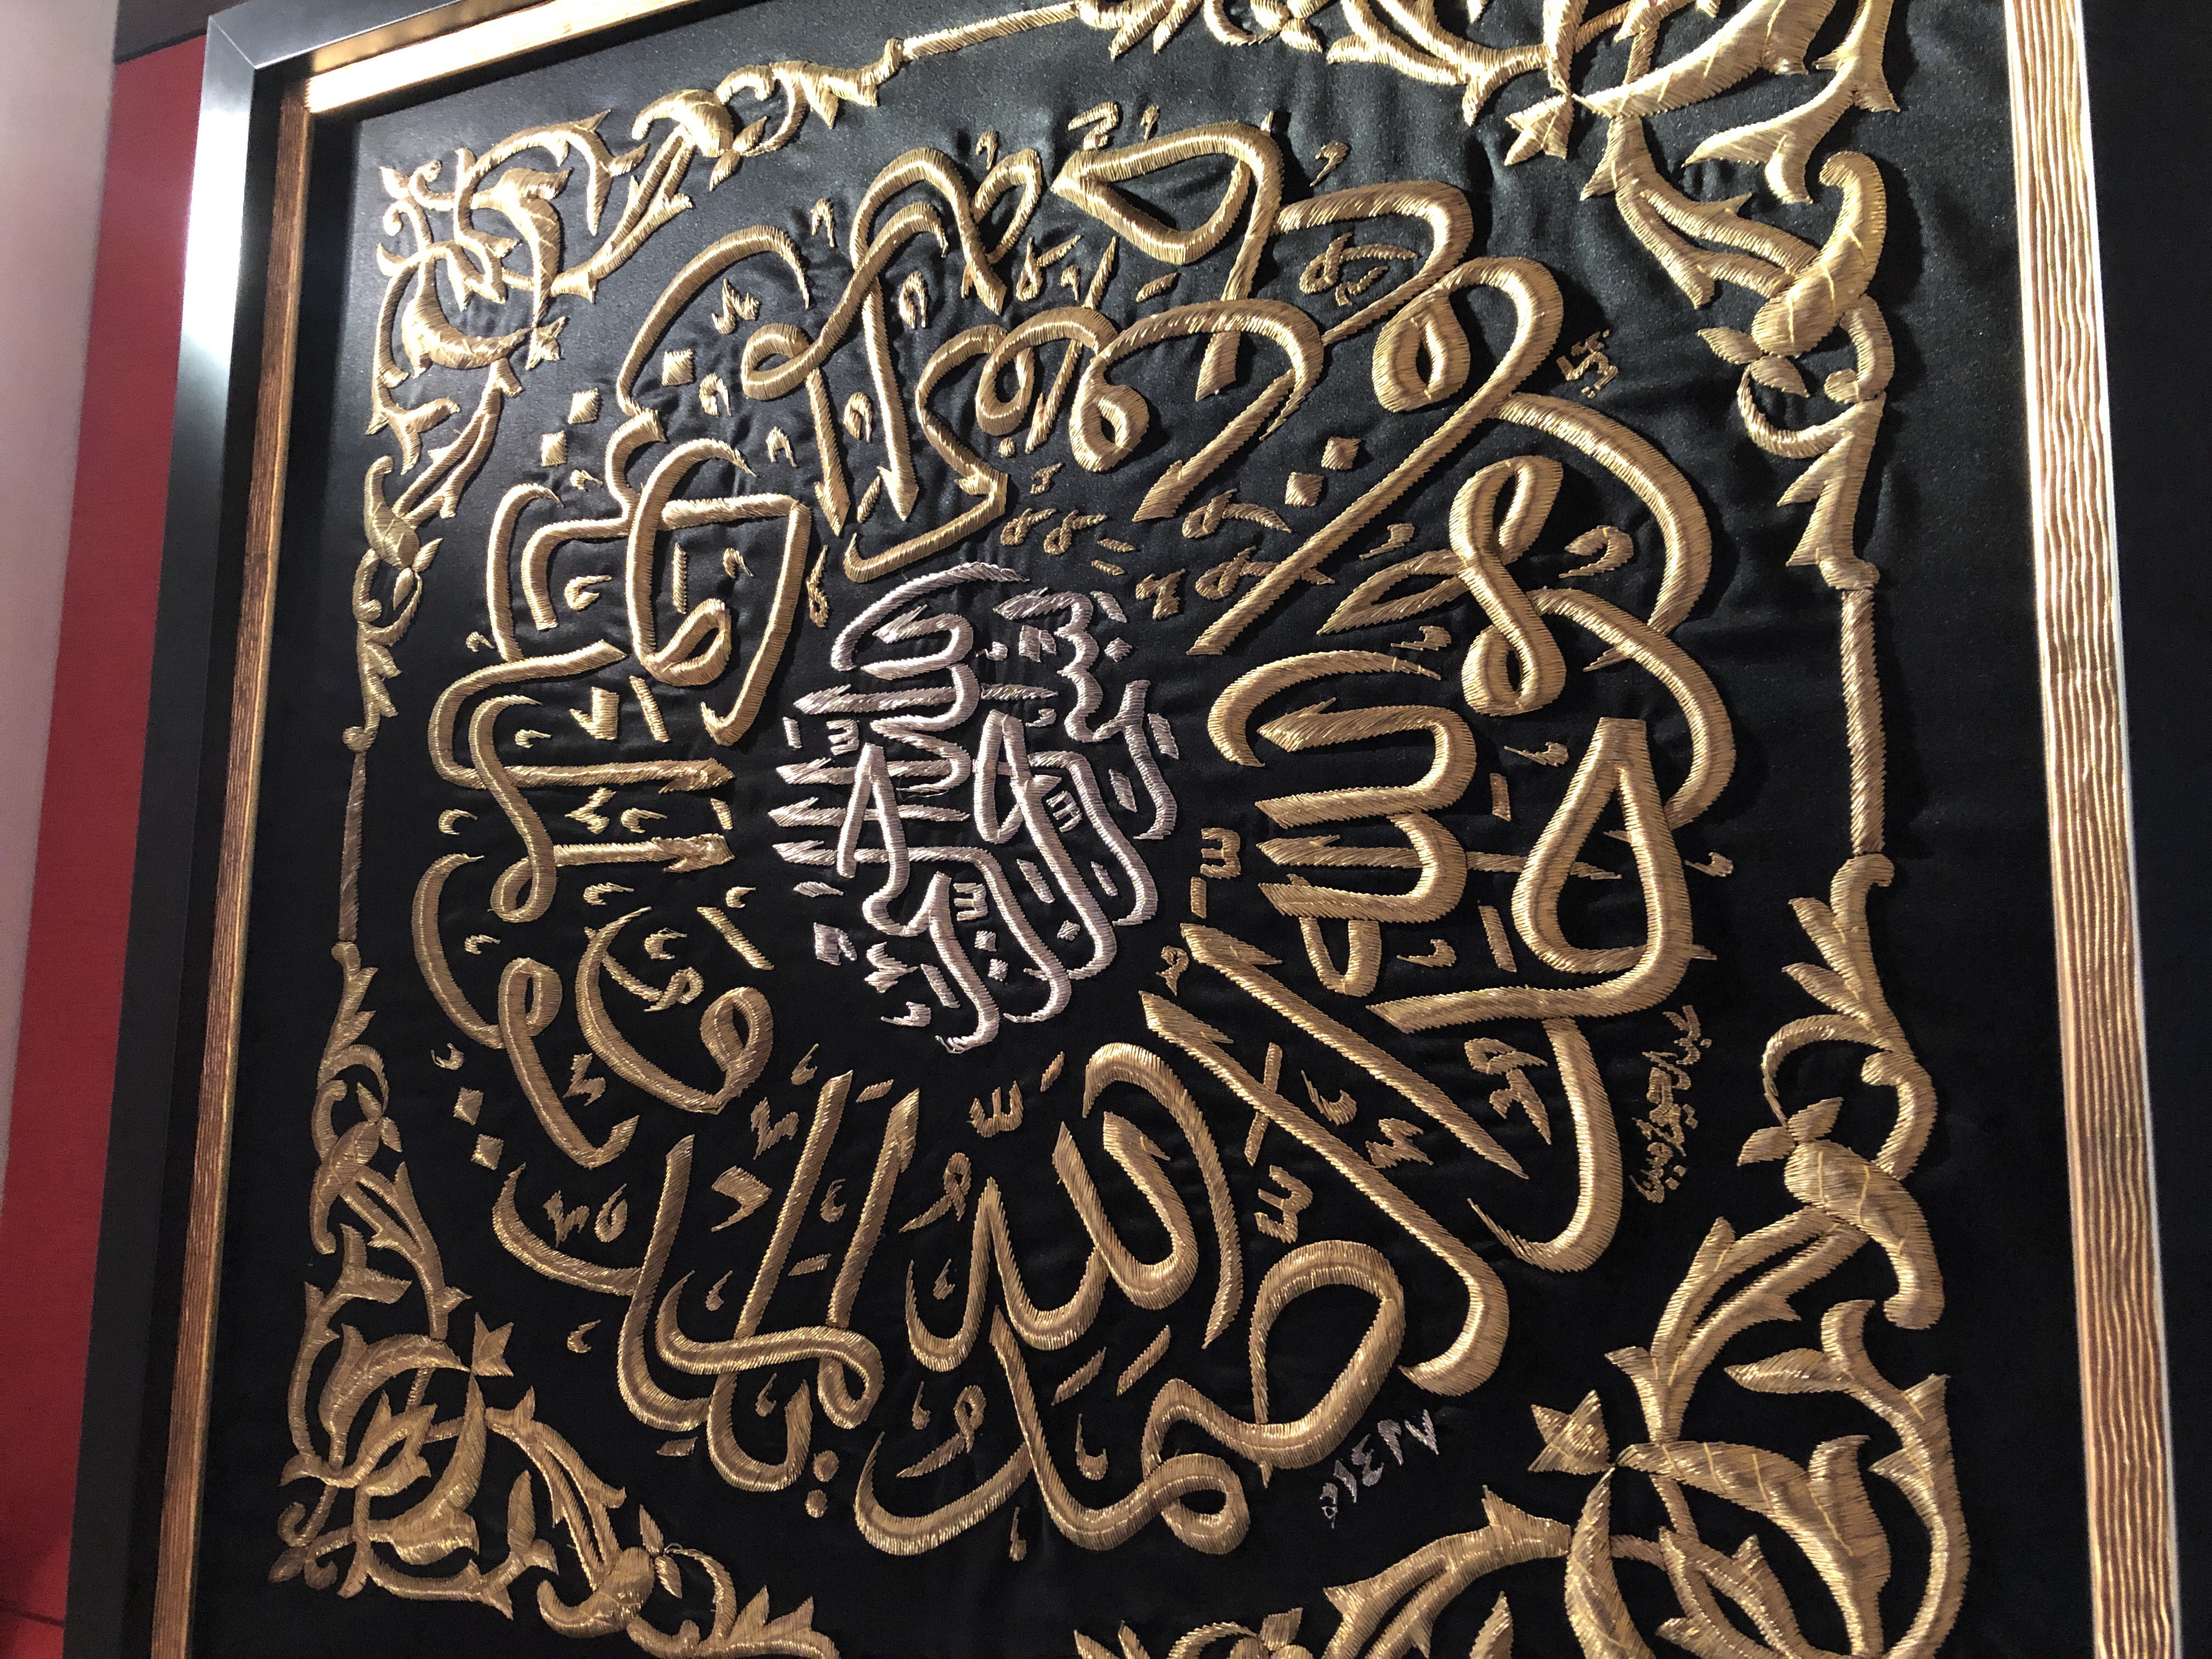 بسم الله الرحمن الرحيم
قل هو الله أحد
الله الصمد
لم يلد ولم يولد
ولم يكن له كفوا أحد